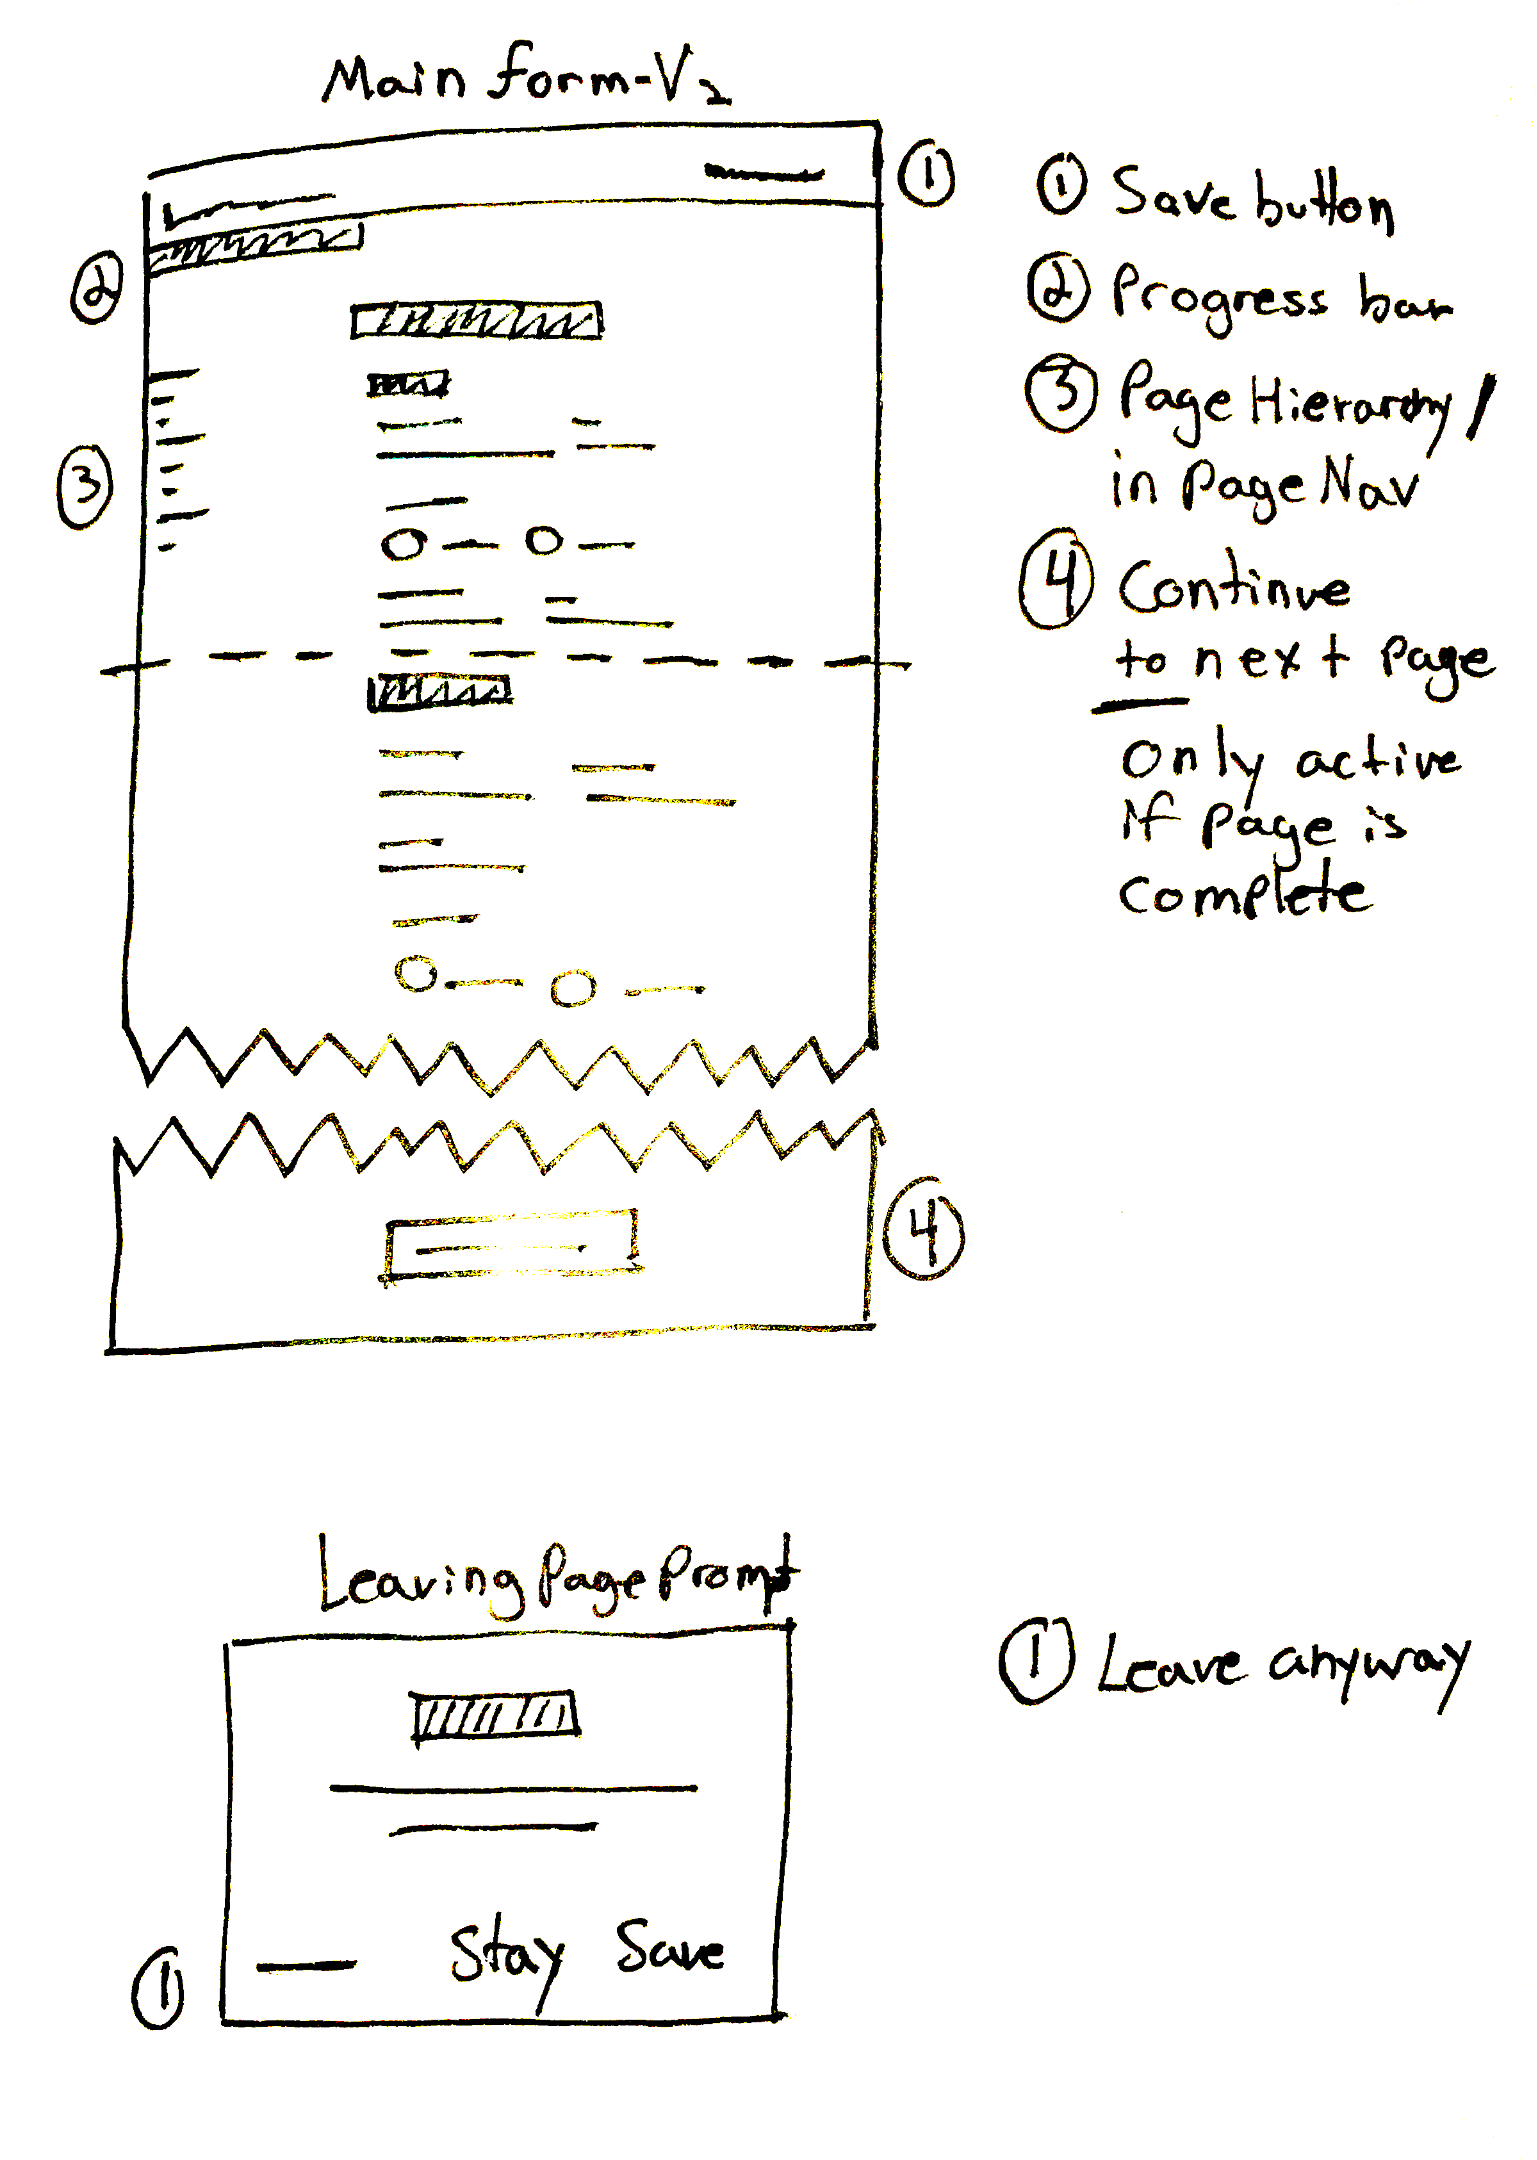 Main form-V2
①
②
③
④
① Save button
② Progress bar
③ Page Hierarchy/
in page Nav
④ Continue
to next page
only active
if page is
complete
Leaving Page Prompt
① Leave anyway
Stay Save
①